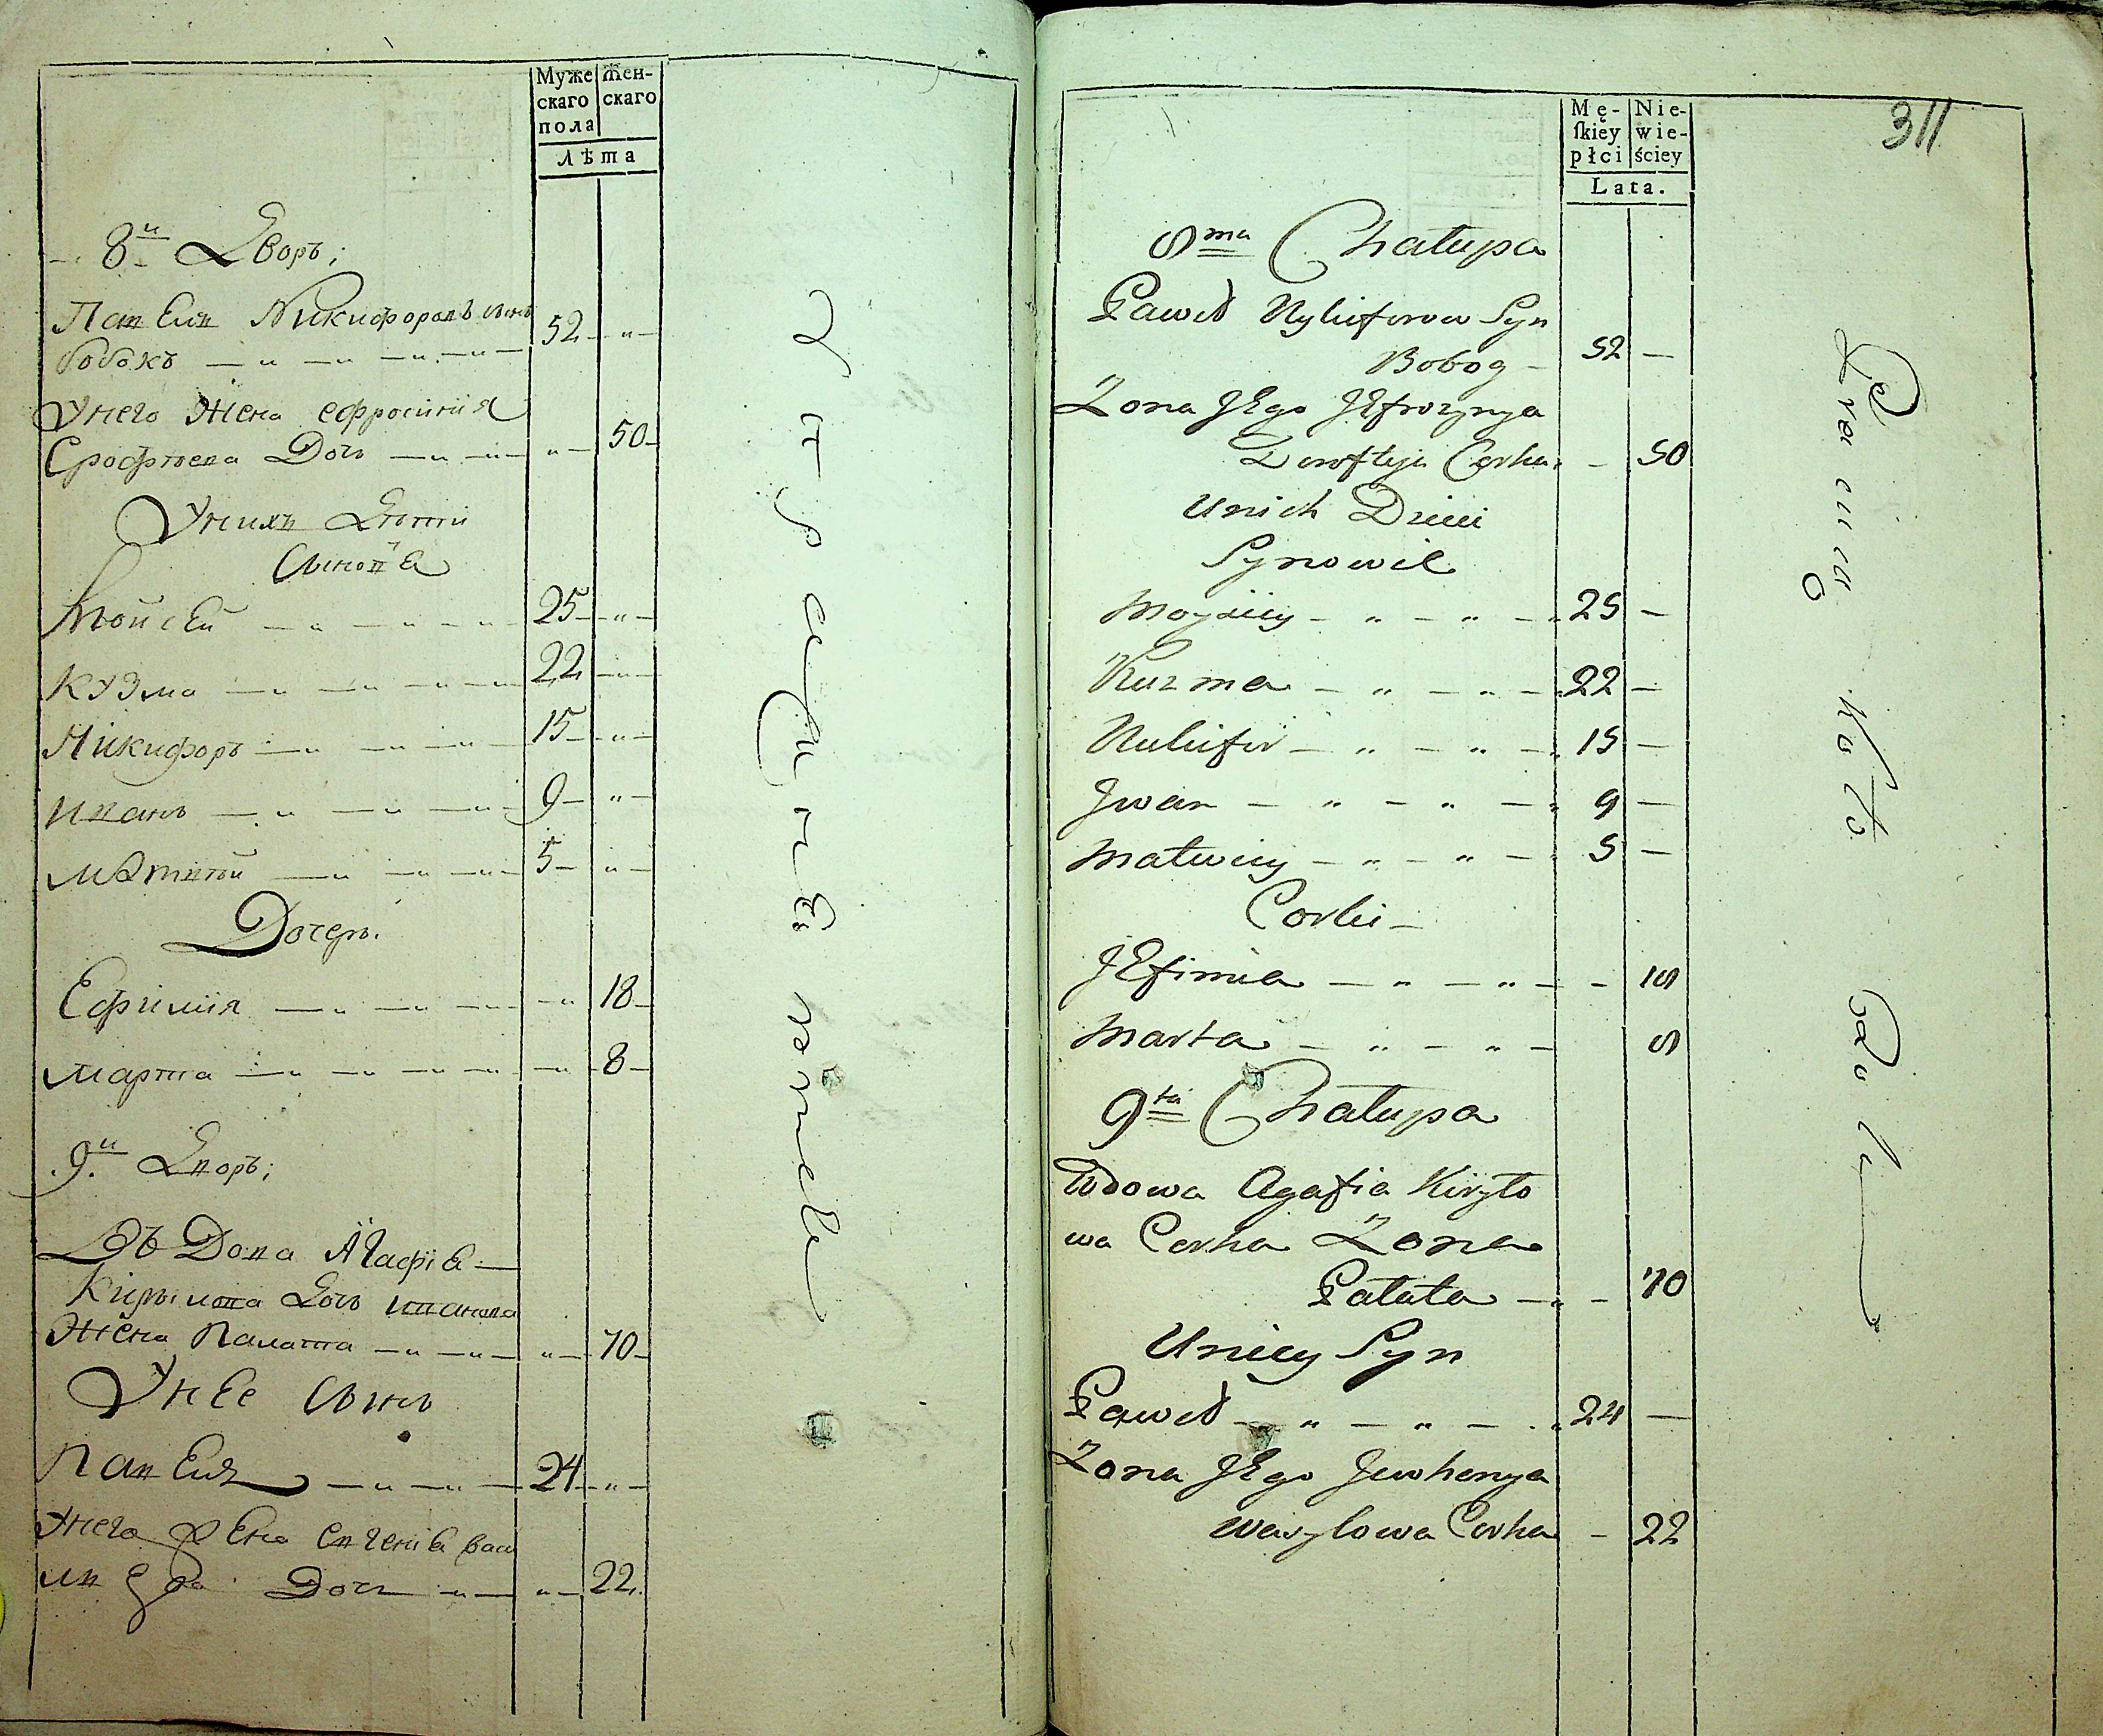 Муже
скаго
пола
Жен-
скаго
Лѣта
8й Дворъ;
Павелъ Никифоровъ сынъ
бобокъ 52
Унего жена ефросинія
Ерофѣева Дочь 50
Унихъ Дѣти
Сыновья
Мойсей 25
Кузма 22
Никифоръ 15
иванъ 9
матвѣй 5
Дочери
Ефимія 18
марта 8
9й Дворъ;
Вдова Агафія
Кирилова Дочь иванова
Жена Палата 70
У нее сынъ
Павелъ 24
Унего жена евгенія васи
Дочь 22
Mę-
skiey
płci
Nie-
wie-
ściey
Lata.
311
8ma Chałupa
Paweł Nykiforow Syn
Bobog 52
Zona JEgo JEfrozynya
Corka 50
Unich Dzieci
Synowie
Moysiey 25
Kuzma 22
Nikifor 15
Jwan 9
Matwiey 5
Corki
JEfimia 18
Marta 8
9ta Chałupa
Wdowa Agafia Kiryło
wa Corka Zona
Pałata 70
Uniey Syn
Paweł 24
Zona JEgo Jewhenya
Wasylowa Corka 22